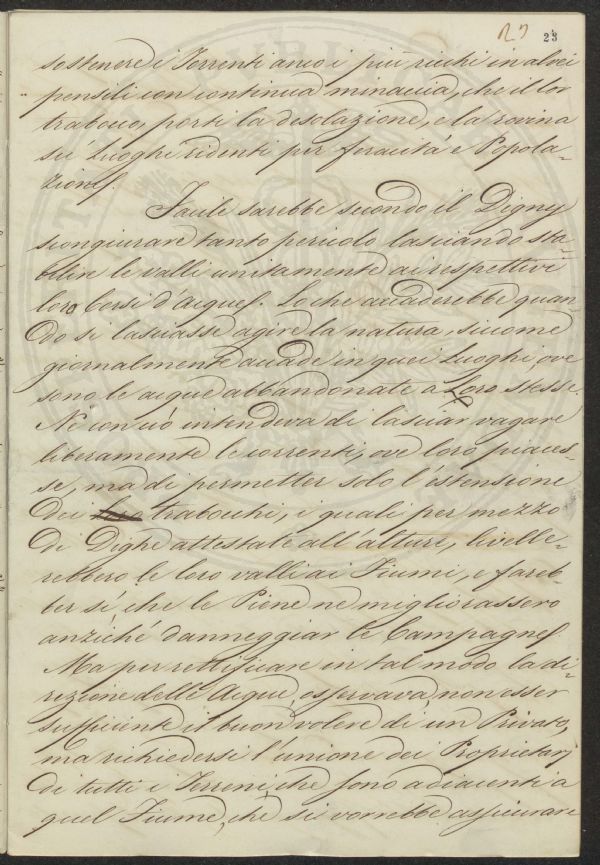 27 23
sostenere i Torrenti anco i più ricchi in alvei
pensili con continua minaccia, che il lor
trabocco, porti la desolazione, e la rovina
sù Luoghi ridenti per feracità e Popola-
zione.
Facile sarebbe secondo il Digny
scongiurare tanto pericolo lasciando sta-
bilire le valli unitamente ai respettivi
loro Corsi d'Acque. Lo che accaderebbe quan
do si lasciasse agire la natura, siccome
giornalmente accade in quei Luoghi, ove
sono le acque abbandonate a Loro stesse.
Nè con ciò intendeva di lasciar vagare
liberamente le correnti, ove loro piaces-
se, ma di permetter solo l'estensione
dei trabocchi, i quali per mezzo
di Dighe attestate all'alture, livelle-
rebbero le loro valli ai Fiumi, e fareb-
ber sì che le Piene ne migliorassero
anziché danneggiar le Campagne.
Ma per rettificare in tal modo la di-
rezione delle Acque, osservava, non esser
sufficiente il buon volere di un Privato,
ma richiedersi l'unione dei Proprietarj
di tutti i Terreni, che sono adiacenti a
quel Fiume, che si vorrebbe assicurare